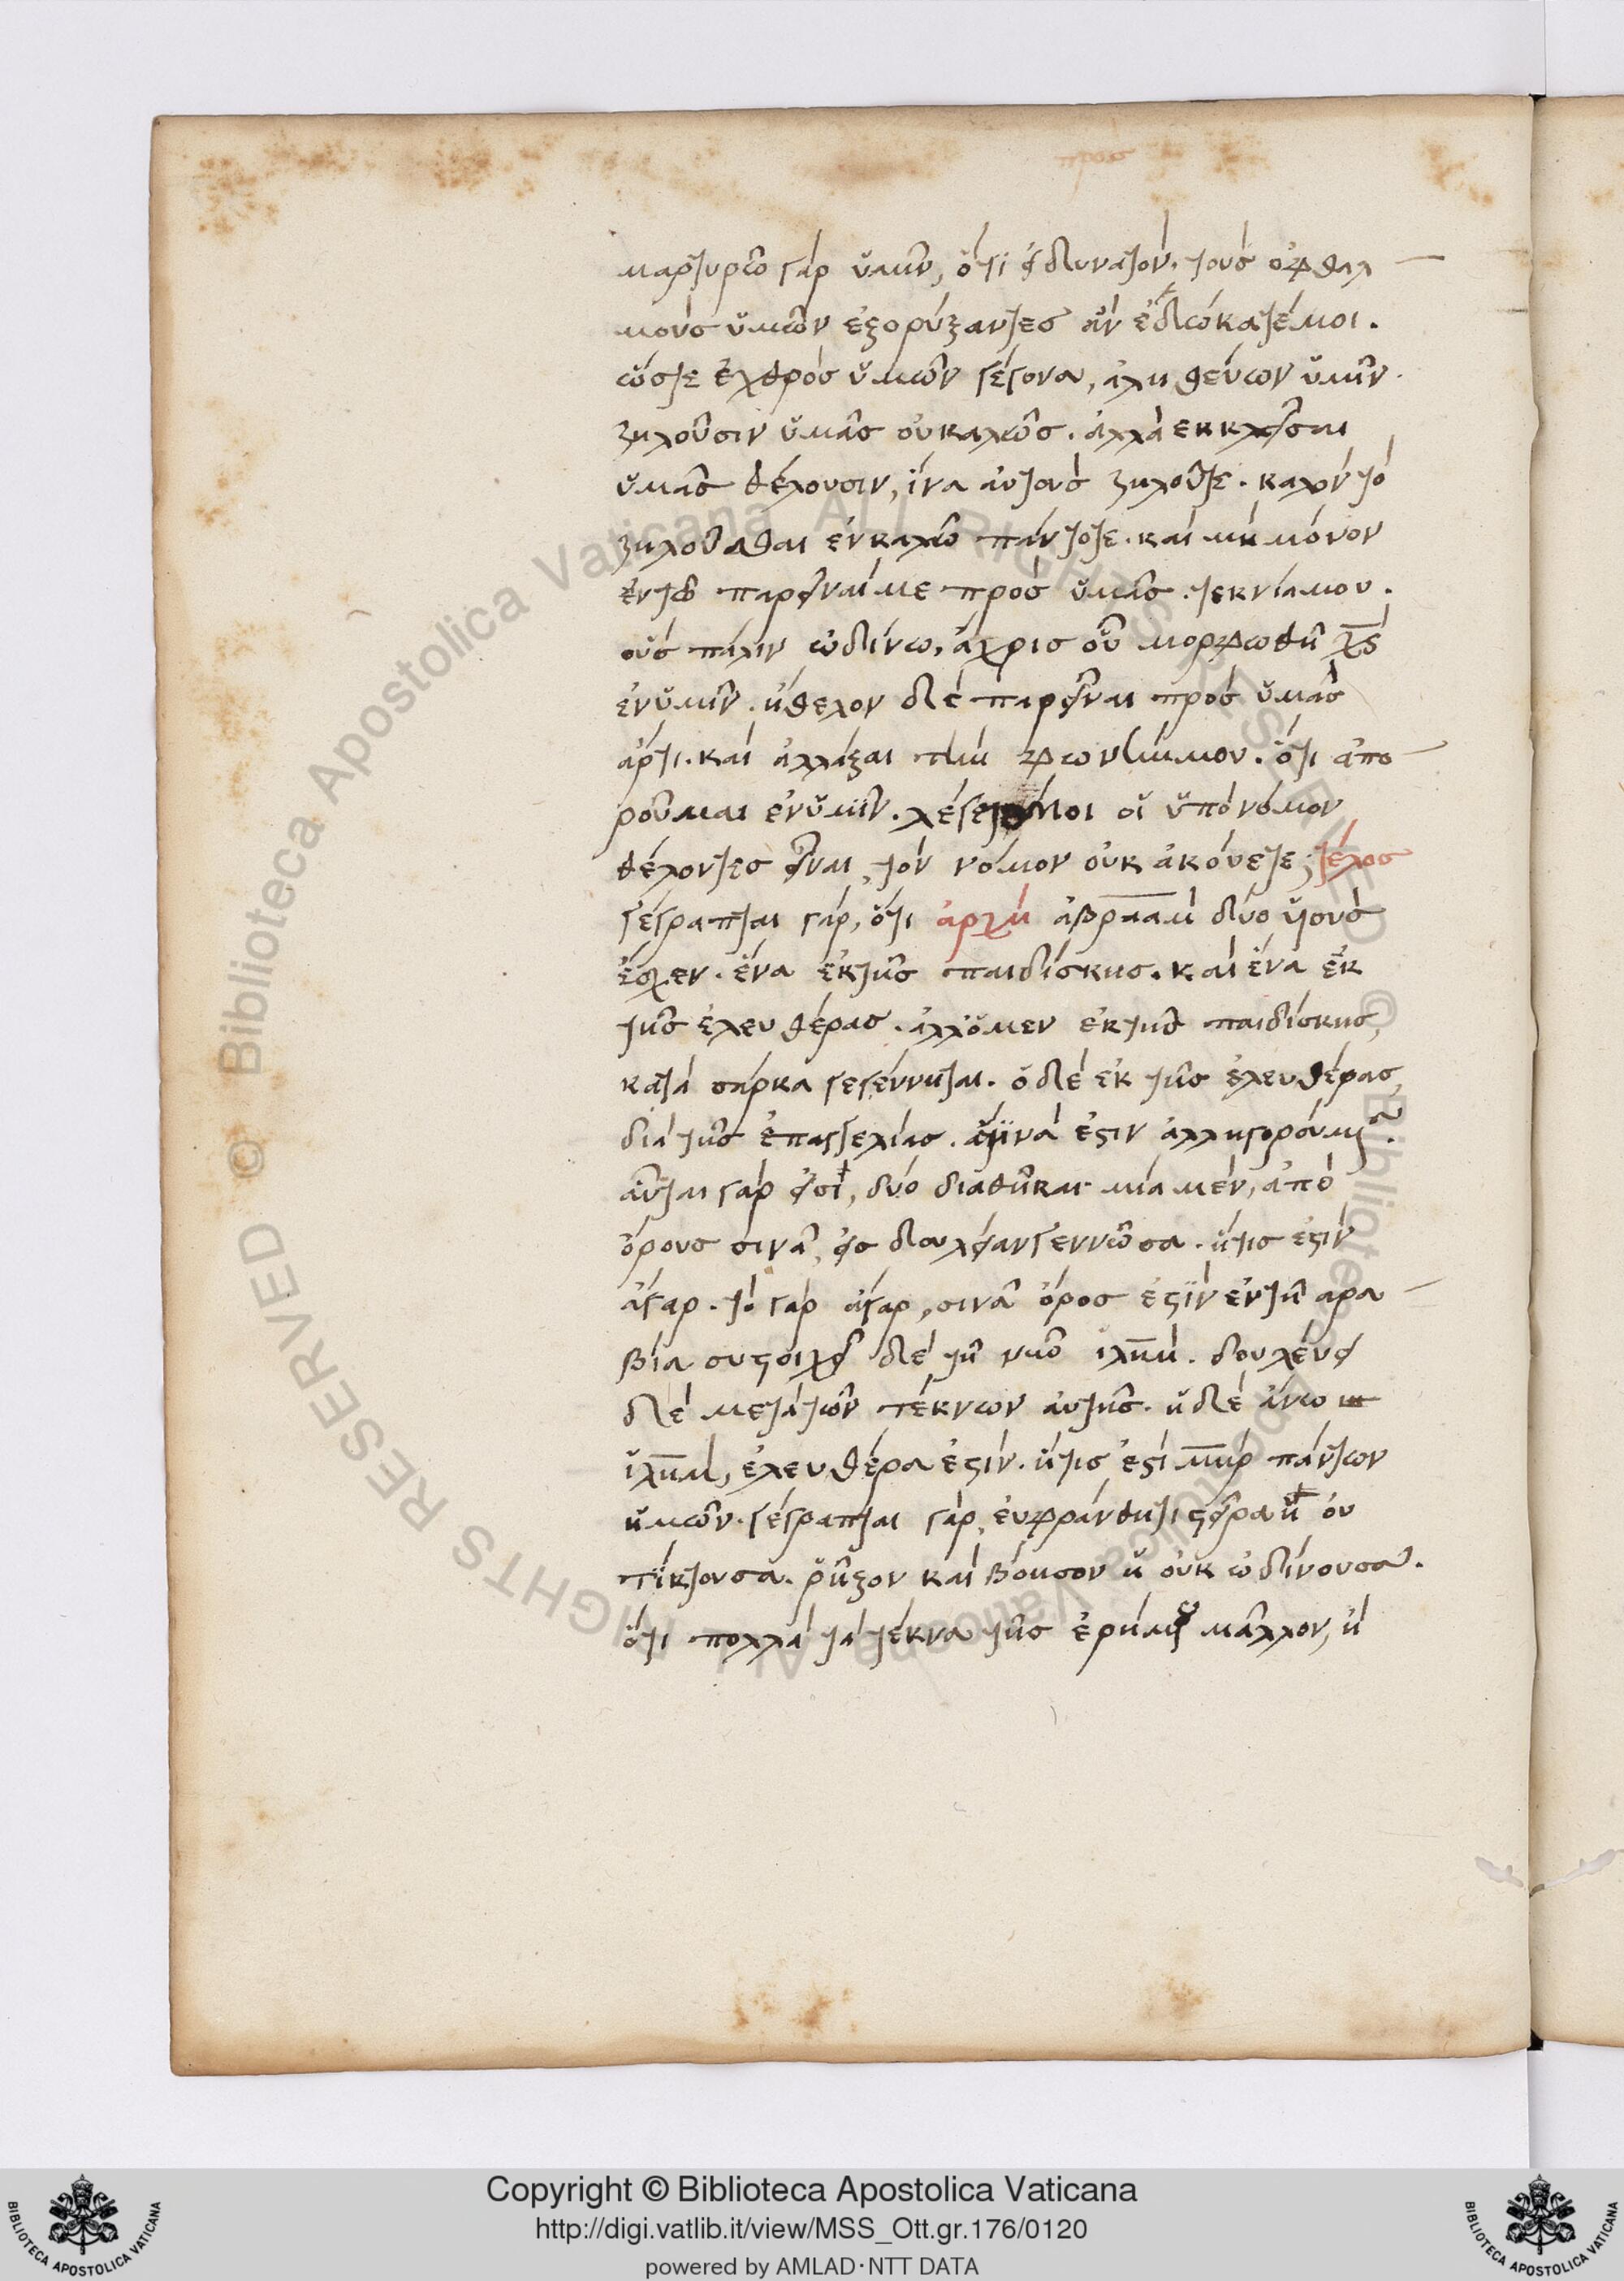 προσ
μαρτυρῶ γὰρ ὑμῖν, ὅτι εἰ δυνατὸν. τοὺς ὀφθαλ
μοὺς ὑμῶν ἐξορύξαντες ἂν ἐδώκατέ μοι.
ὥστε ἐχθρὸς ὑμῶν γέγονα, ἀληθεύων ὑμῖν.
ζηλοῦσιν ὑμᾶς οὐ καλῶς. ἀλλὰ ἐκκλεῖσαι
ὑμᾶς θέλουσιν, ἵνα αὐτοὺς ζηλοῦτε. καλὸν τὸ
ζηλοῦσθαι ἐν καλῶ πάντοτε. καὶ μὴ μόνον
ἐν τῶ παρεῖναί με πρὸς ὑμᾶς. τεκνία μου.
οὓς πάλιν ὠδίνω, ἄχρις οὗ μορφωθῆ χς
ἐν ὑμῖν. ἤθελον δὲ παρεῖναι πρὸς ὑμᾶς
ἄρτι. καὶ ἀλλάξαι τὴν φωνήν μου. ὅτι ἀπο
ροῦμαι ἐν ὑμῖν. λέγετέ μοι οἱ ὑπὸ νόμον
θέλοντες εἶναι, τὸν νόμον οὐκ ἀκούετε; τέλος
γέγραπται γὰρ, ὅτι ἀρχὴ ἀβραὰμ δύο υἱοὺς
ἔσχεν. ἕνα ἐκ τῆς παιδίσκης. καὶ ἕνα ἐκ
τῆς ἐλευθέρας. ἀλλ' ὁ μὲν ἐκ τῆς παιδίσκης,
κατὰ σάρκα γεγέννηται. ὁ δὲ ἐκ τῆς ἐλευθέρας,
διὰ τῆς ἐπαγγελίας. ἅτινά ἐστιν ἀλληγορούμενα.
αὗται γάρ εἰσι, δύο διαθῆκαι· μία μὲν, ἀπὸ
ὄρους σινᾶ, εἰς δουλείαν γεννῶσα. ἥτις ἐστὶν
ἄγαρ. τὸ γὰρ ἄγαρ, σινᾶ ὄρος ἐστὶν ἐν τῆ αρα
βία συστοιχεῖ δὲ τῆ νῦν ιλημ. δουλεύει
δὲ μετὰ τῶν τέκνων αὐτῆς. ἡ δὲ ἄνω
ιλημ, ἐλευθέρα ἐστίν. ἥτις ἐστὶ μηρ πάντων
ἡμῶν. γέγραπται γὰρ, εὐφράνθητι στεῖρα ἡ οὐ
τίκτουσα. ῥῆξον καὶ βόησον ἡ οὐκ ὠδίνουσα.
ὅτι πολλὰ τὰ τέκνα τῆς ἐρήμου μᾶλλον, ἢ
Copyright © Biblioteca Apostolica Vaticana
http://digi.vatlib.it/view/MSS_Ott.gr.176/0120
powered by AMLAD·NTT DATA